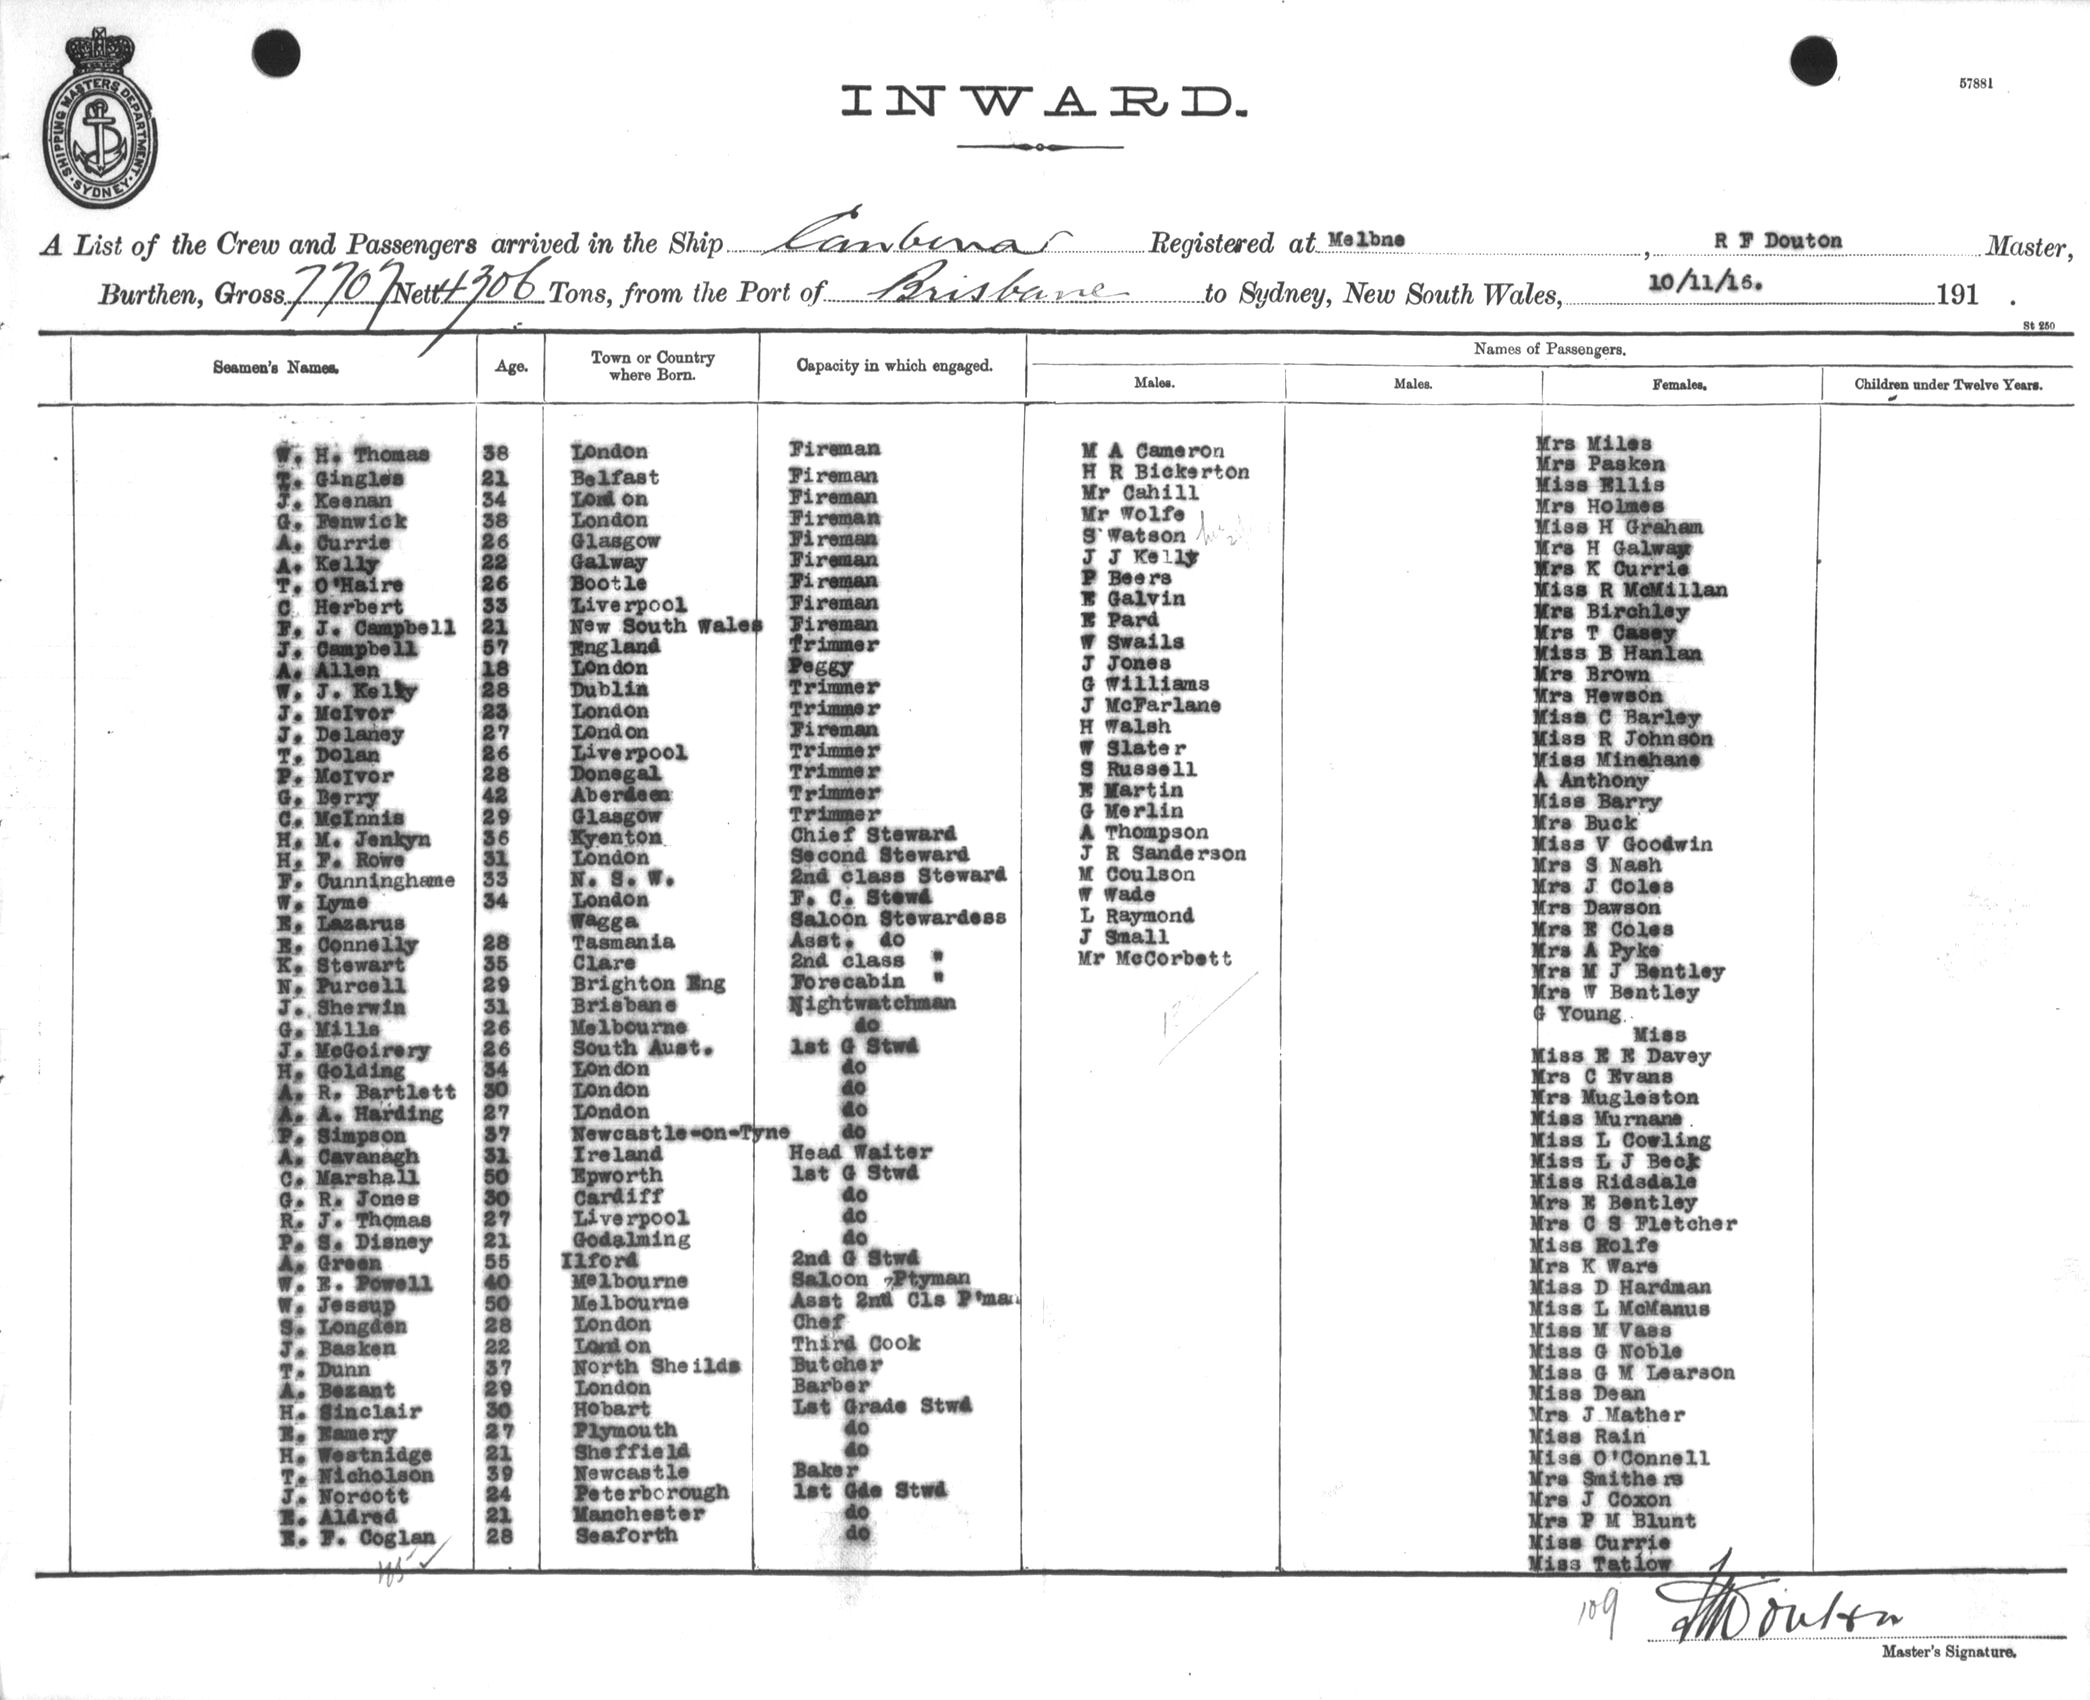 SHIPPING MASTERS DEPARTMENT
SYDNEY
57881
INWARD.
A List of the Crew and Passengers arrived in the Ship Canberra Registered at Melbne, R F Douton Master,
Burthen, Gross 7707 Nett 4306 Tons, from the Port of Brisbane to Sydney, New South Wales, 10/11/16. 191 .
St 250
Seamen's Names. Age. Town or Country where Born. Capacity in which engaged. Names of Passengers.
Males. Males. Females. Children under Twelve Years.
W. H. Thomas 38 London Fireman M A Cameron Mrs Miles
T. Gingles 21 Belfast Fireman H R Bickerton Mrs Pasken
J. Keenan 34 London Fireman Mr Cahill Miss Ellis
G. Fenwick 38 London Fireman Mr Wolfe Mrs Holmes
A. Currie 26 Glasgow Fireman S Watson Miss H Graham
A. Kelly 22 Galway Fireman J J Kelly Mrs H Galway
T. O'Haire 26 Bootle Fireman P Beers Mrs K Currie
C Herbert 33 Liverpool Fireman E Galvin Miss R McMillan
F. J. Campbell 21 New South Wales Fireman E Pard Mrs Birchley
J. Campbell 57 England Trimmer W Swails Mrs T Casey
A. Allen 18 London Peggy J Jones Miss B Hanlan
W. J. Kelly 28 Dublin Trimmer G Williams Mrs Brown
J. McIvor 23 London Trimmer J McFarlane Mrs Hewson
J. Delaney 27 London Fireman H Walsh Miss C Barley
T. Dolan 26 Liverpool Trimmer W Slater Miss R Johnson
P. McIvor 28 Donegal Trimmer S Russell Miss Minehane
G. Berry 42 Aberdeen Trimmer E Martin A Anthony
C. McInnis 29 Glasgow Trimmer G Merlin Miss Barry
H. M. Jenkyn 36 Kyenton Chief Steward A Thompson Mrs Buck
H. F. Rowe 31 London Second Steward J R Sanderson Miss V Goodwin
F. Cunninghame 33 N. S. W. 2nd class Steward M Coulson Mrs S Nash
W. Lyme 34 London F. C. Stewd W Wade Mrs J Coles
E. Lazarus Wagga Saloon Stewardess L Raymond Mrs Dawson
E. Connelly 28 Tasmania Asst. do J Small Mrs E Coles
K. Stewart 35 Clare 2nd class " Mr McCorbett Mrs A Pyke
N. Purcell 29 Brighton Eng Forecabin " Mrs M J Bentley
J. Sherwin 31 Brisbane Nightwatchman Mrs W Bentley
G. Mills 26 Melbourne do G Young
J. McGoirery 26 South Aust. 1st G Stwd Miss
H. Golding 34 London do Miss E E Davey
A. R. Bartlett 30 London do Mrs C Evans
A. A. Harding 27 London do Mrs Mugleston
P. Simpson 37 Newcastle-on-Tyne do Miss Murnane
A. Cavanagh 31 Ireland Head Waiter Miss L Cowling
C. Marshall 50 Epworth 1st G Stwd Miss L J Beck
G. R. Jones 30 Cardiff do Miss Ridsdale
R. J. Thomas 27 Liverpool do Mrs E Bentley
P. S. Disney 21 Godalming do Mrs C S Fletcher
A. Green 55 Ilford 2nd G Stwd Miss Rolfe
W. E. Powell 40 Melbourne Saloon Ptyman Mrs K Ware
W. Jessup 50 Melbourne Asst 2nd Cls P'man Miss D Hardman
S. Longden 28 London Chef Miss L McManus
J. Basken 22 London Third Cook Miss M Vass
T. Dunn 37 North Sheilds Butcher Miss G Noble
A. Bezant 29 London Barber Miss G M Learson
H. Sinclair 30 Hobart Lst Grade Stwd Miss Dean
E. Eamery 27 Plymouth do Mrs J Mather
H. Westnidge 21 Sheffield do Miss Rain
T. Nicholson 39 Newcastle Baker Miss O'Connell
J. Norcott 24 Peterborough 1st Gde Stwd Mrs Smithers
E. Aldred 21 Manchester do Mrs J Coxon
E. F. Coglan 28 Seaforth do Mrs P M Blunt
Miss Currie
Miss Tatlow
109
Douton
Master's Signature.